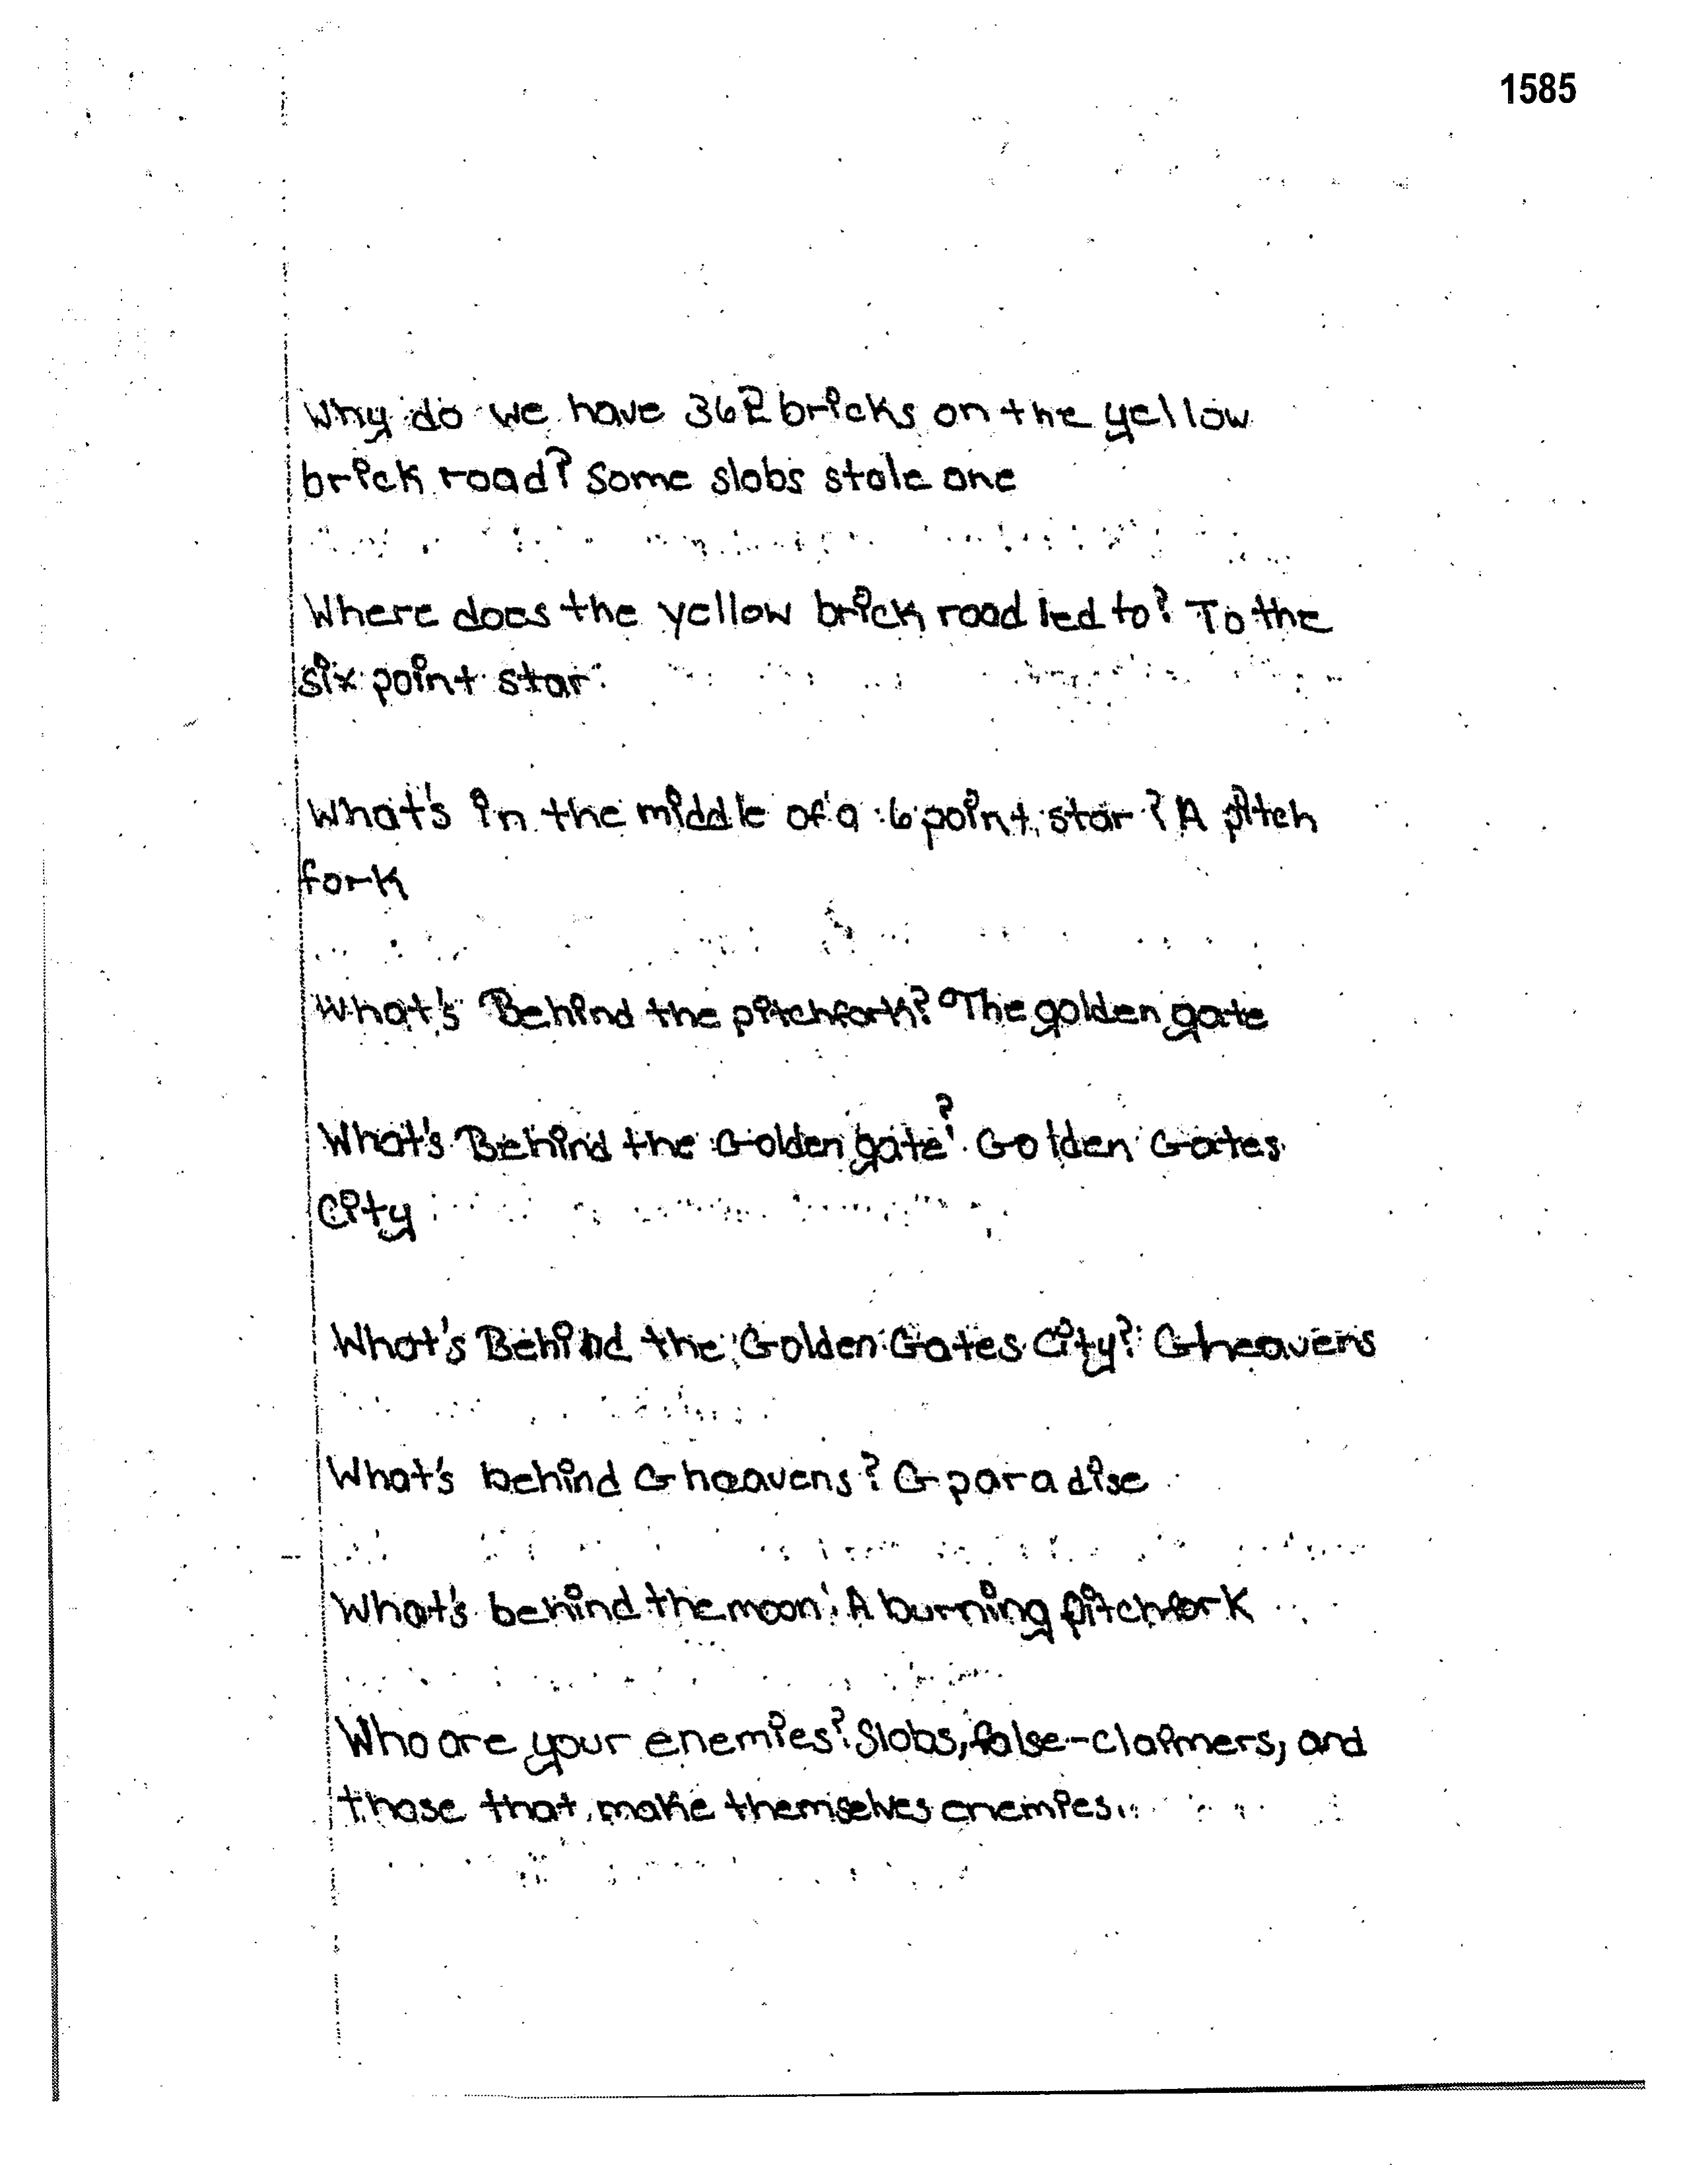 1585
Why do we have 362 bricks on the yellow
brick road? Some slobs stole one
Where does the yellow brick road led to? To the
six point star
What's in the middle of a 6 point star? A pitch
fork
What's Behind the pitchfork? The golden gate
What's Behind the Golden gate? Golden Gates
City
What's Behind the Golden Gates City? Gheavens
What's behind Gheavens? G paradise
What's behind the moon? A burning pitchfork
Who are your enemies? Slobs, false-claimers, and
those that make themselves enemies.